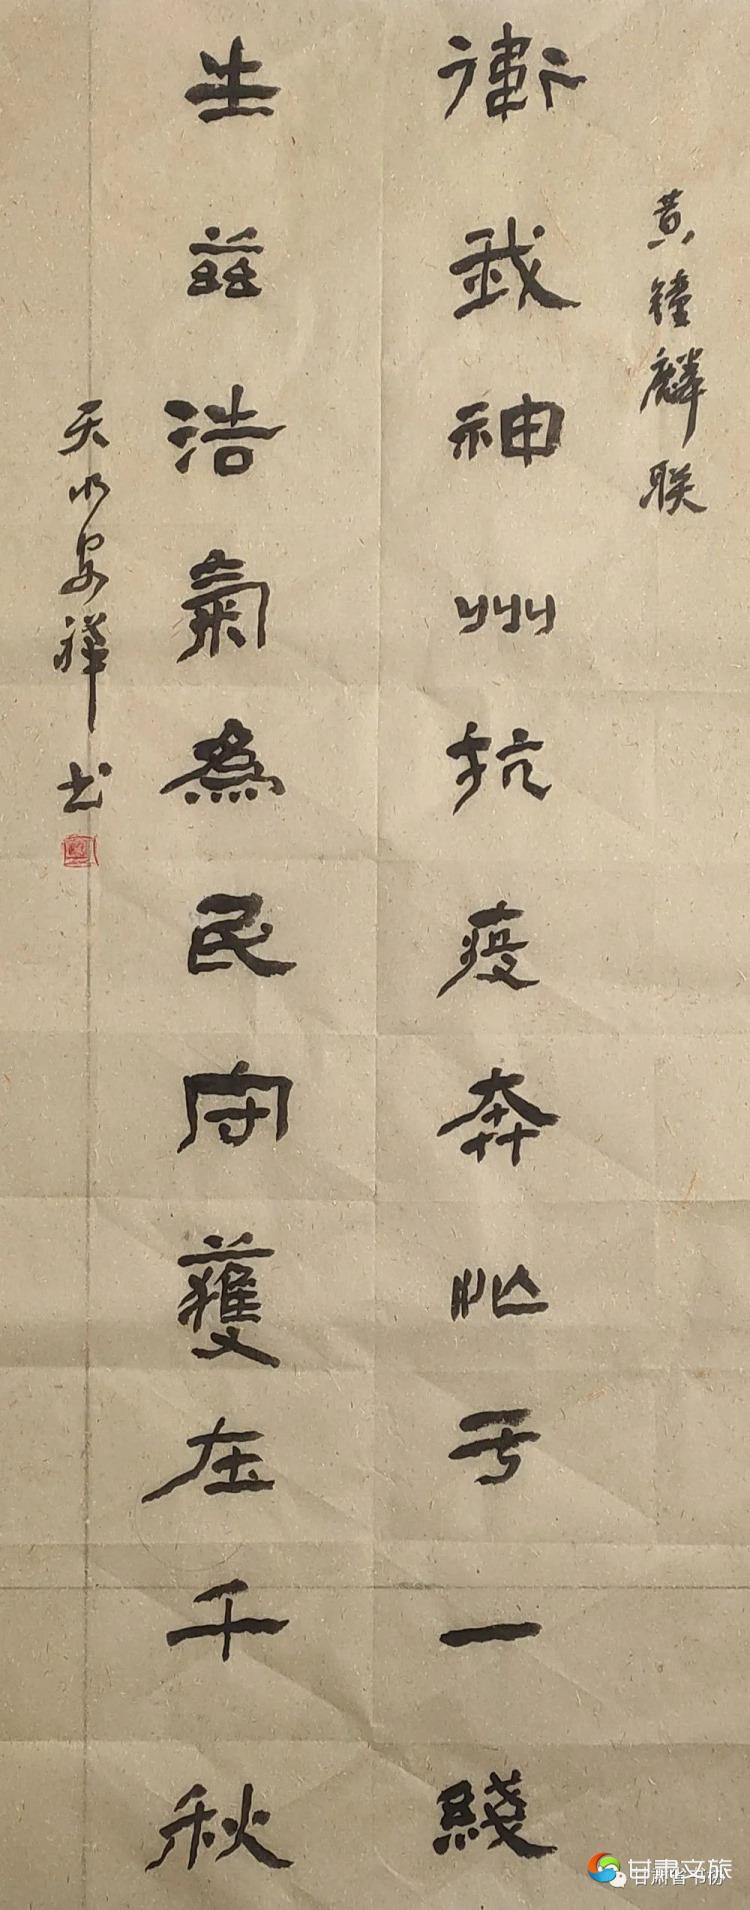 黄鐘麟联
衛我神州抗疫奔忙于一綫
生茲浩氣為民守護在千秋
天水安祥书
甘肃文旅
甘肃省书协